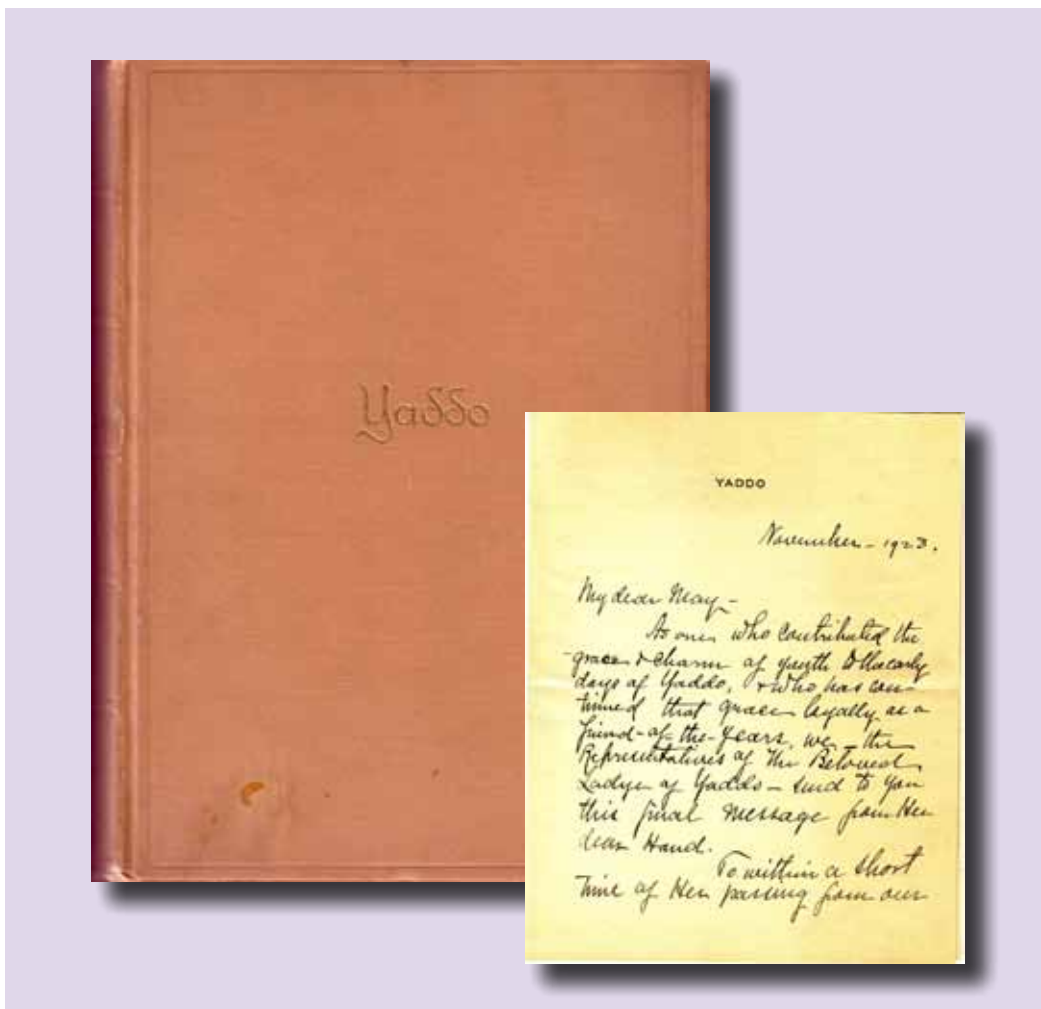 Yaddo
YADDO
November – 1923.
My dear May –
As one who contributed the
grace & charm of youth to the early
days of Yaddo, & who has con-
tinued that grace loyally as a
friend-of-the-years, we – the
Representatives of the Beloved
Ladye of Yaddo – send to you
this final message from Her
dear Hand.
To within a short
time of Her passing from our